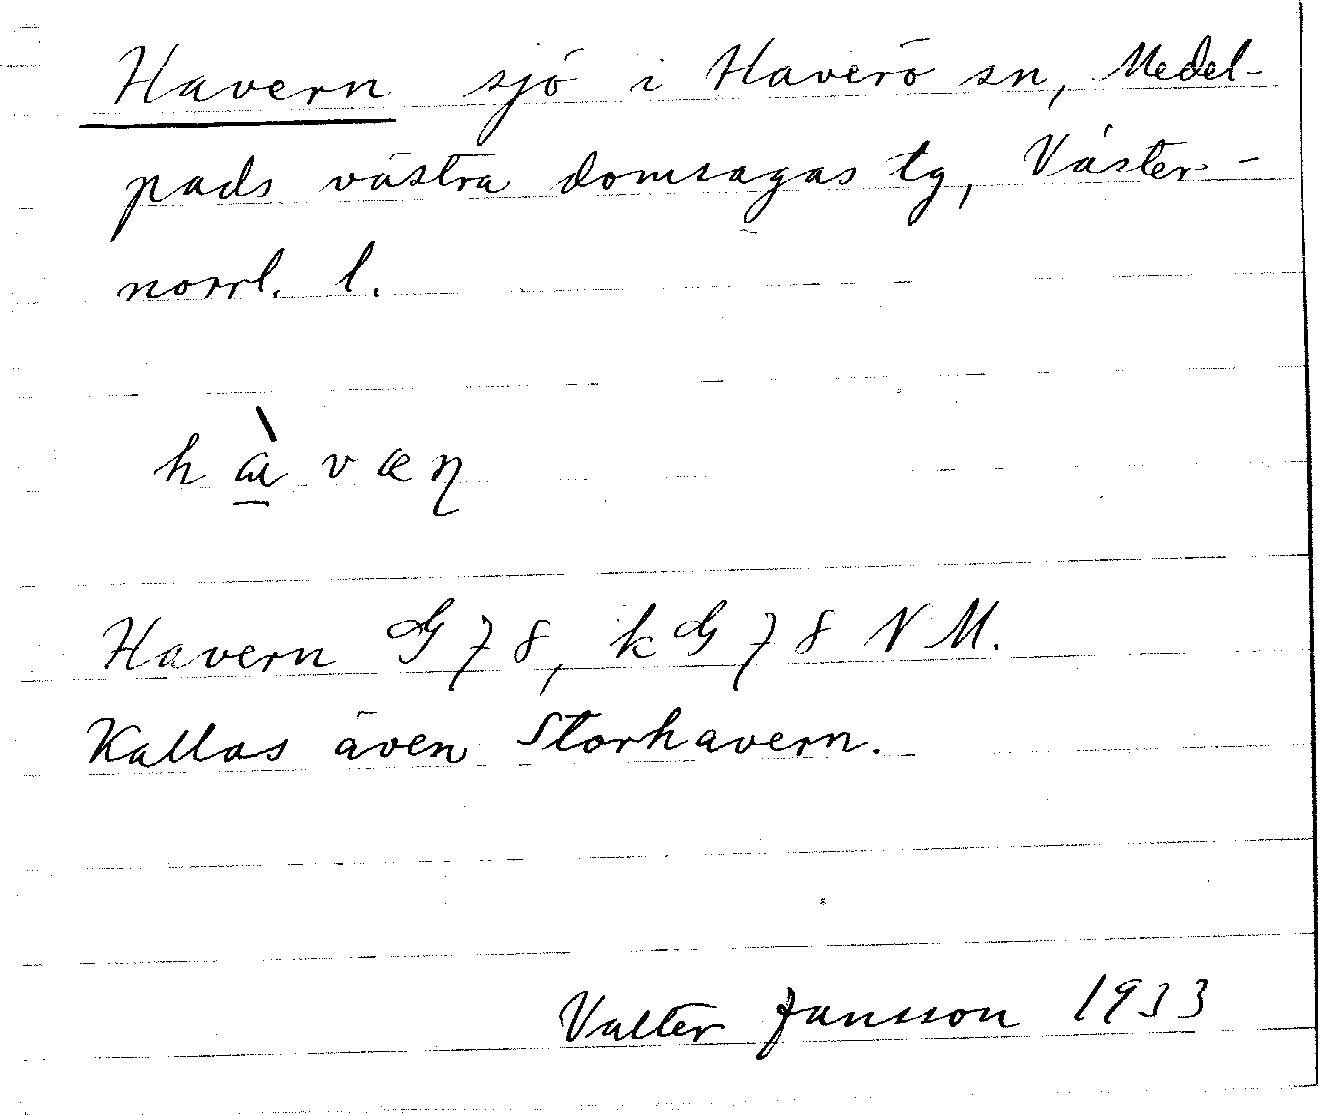 Havern sjö i Haverö sn, Medel-
pads västra domsagas tg, Väster-
norrl. l.
hà̱væn̡
Havern G78, kG78 NM.
Kallas även Storhavern.
Valter Jansson 1933